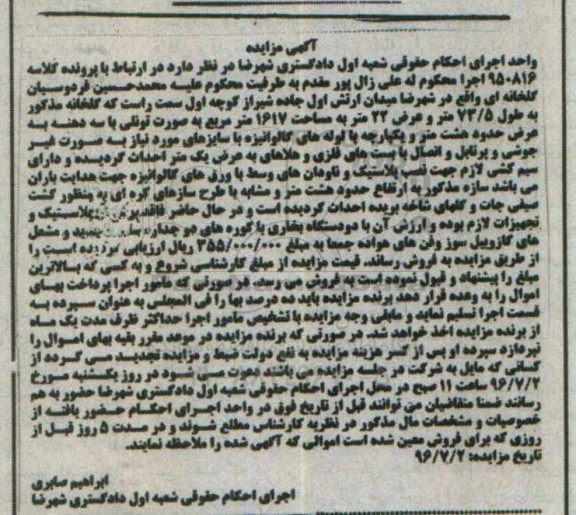 آگهی مزایده
واحد اجرای احکام حقوقی شعبه اول دادگستری شهرضا در نظر دارد در ارتباط با پرونده کلاسه
۹۵۰۸۱۶ اجرا محکوم له علی زال پور مقدم به طرفیت محکوم علیه محمدحسین فردوسیان
گلخانه ای واقع در شهرضا میدان ارتش اول جاده شیراز کوچه اول سمت راست که گلخانه مذکور
به طول ۷۳/۵ متر و عرض ۲۲ متر به مساحت ۱۶۱۷ متر مربع به صورت تونلی با سه دهنه به
عرض حدود هشت متر و یکپارچه با لوله های گالوانیزه با سایزهای مورد نیاز به صورت غیر
جوشی و پرتابل و اتصال با بست های فلزی و هلالهای به عرض یک متر احداث گردیده و دارای
سیم کشی لازم جهت نصب پلاستیک و ناودان های وسط با ورق های گالوانیزه جهت هدایت باران
می باشد سازه مذکور به ارتفاع حدود هشت متر و مشابه با طرح سازهای گره ای به منظور کشت
صیفی جات و گلهای شاخه بریده احداث گردیده است و در حال حاضر فاقد پلاستیک و
تجهیزات لازم بوده و ارزش آن با دودستگاه بخاری با کوره های دو جداره و مشعل
های گازوییل سوز وفن های هوادهه جمعا به مبلغ ۳۵۵/۰۰۰/۰۰۰ ریال ارزیابی گردیده است را
از طریق مزایده به فروش رساند. قیمت مزایده از مبلغ کارشناسی شروع و به کسی که بالاترین
مبلغ را پیشنهاد و قبول نموده است به فروش می رسد. در صورتی که مامور اجرا پرداخت بهای
اموال را به وعده قرار دهد برنده مزایده باید ده درصد بها را فی المجلس به عنوان سپرده به
قسمت اجرا تسلیم نماید و مابقی وجه مزایده با تشخیص مامور اجرا حداکثر ظرف مدت یک ماه
از برنده مزایده اخذ خواهد شد. در صورتی که برنده مزایده در موعد مقرر بقیه بهای اموال را
نپردازد سپرده او پس از کسر هزینه مزایده به نفع دولت ضبط و مزایده تجدید می گردد از
کسانی که مایل به شرکت در جلسه مزایده می باشند دعوت می شود در روز یکشنبه مورخ
۹۶/۷/۲ ساعت ۱۱ صبح در محل اجرای احکام حقوقی شعبه اول دادگستری شهرضا حضور به هم
رسانند ضمنا متقاضیان می توانند قبل از تاریخ فوق در واحد اجرای احکام حضور یافته از
خصوصیات و مشخصات مال مذکور در نظریه کارشناس مطلع شوند و در مدت ۵ روز قبل از
روزی که برای فروش معین شده است اموالی که آگهی شده را ملاحظه نمایند.
تاریخ مزایده: ۹۶/۷/۲
ابراهیم صابری
اجرای احکام حقوقی شعبه اول دادگستری شهرضا